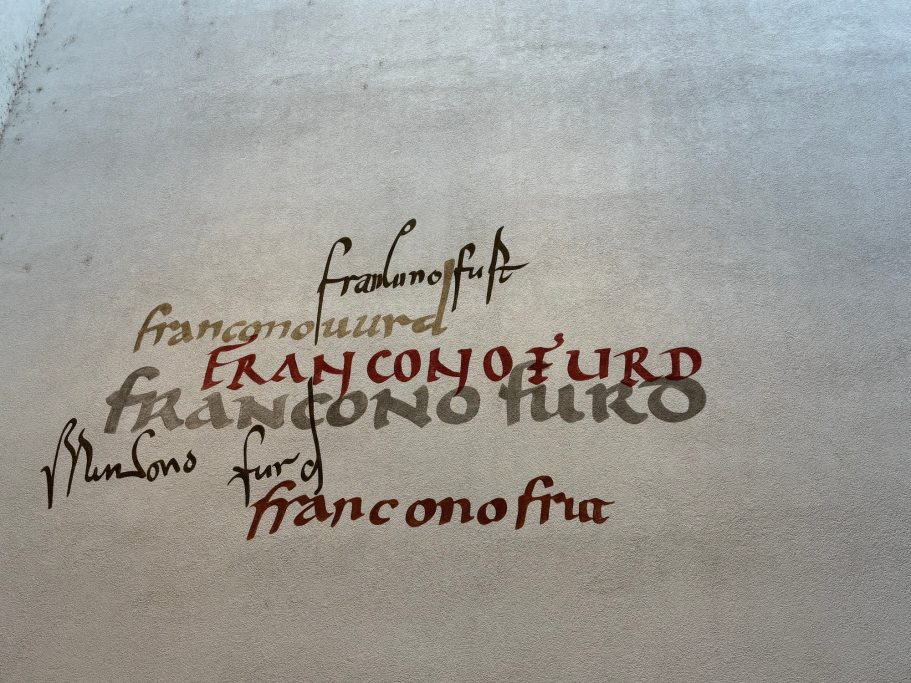 franconofurt
franconouurd
FRANCONOFURD
franconofurd
francono furd
franconofrut